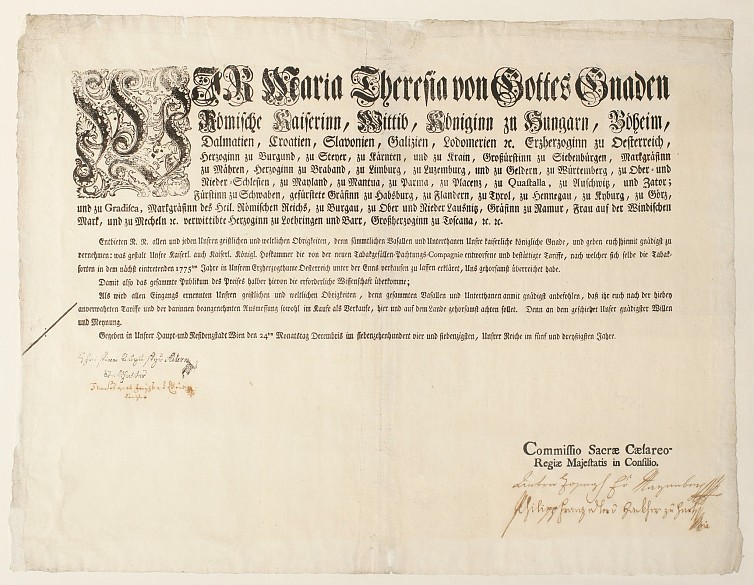 WIR Maria Theresia von Gottes Gnaden
Römische Kaiserinn, Wittib, Königinn zu Hungarn, Böheim,
Dalmatien, Croatien, Slavonien, Galizien, Lodomerien ꝛc. Erzherzoginn zu Oesterreich,
Herzoginn zu Burgund, zu Steyer, zu Kärnten, und zu Krain, Großfürstinn zu Siebenbürgen, Markgräfinn
zu Mähren, Herzoginn zu Braband, zu Limburg, zu Luxenburg, und zu Geldern, zu Würtemberg, zu Ober- und
Nieder-Schlesien, zu Mayland, zu Mantua, zu Parma, zu Placenz, zu Quastalla, zu Auschwitz, und Zator;
Fürstinn zu Schwaben, gefürstete Gräfinn zu Habsburg, zu Flandern, zu Tyrol, zu Hennegau, zu Kyburg, zu Görz,
und zu Gradisca, Markgräfinn des Heil. Römischen Reichs, zu Burgau, zu Ober und Nieder Lausnitz, Gräfinn zu Namur, Frau auf der Windischen
Mark, und zu Mecheln ꝛc. verwittibte Herzoginn zu Lothringen und Barr, Großherzoginn zu Toscana, ꝛc. ꝛc.
Entbieten N. N. allen und jeden Unsern geistlichen und weltlichen Obrigkeiten, denn sämmtlichen Vasallen und Unterthanen Unsre kaiserliche königliche Gnade, und geben euch hiemit gnädigst zu
vernehmen: was gestalt Unsre Kaiserl. auch Kaiserl. Königl. Hofkammer die von der neuen Tabakgefällen-Pachtungs-Compagnie entworfene und bestättigte Tariffe, nach welcher sich selbe die Tabak-
sorten in dem nächst eintretenden 1775ten Jahre in Unserm Erzherzogthume Oesterreich unter der Enns verkaufen zu lassen erkläret, Uns gehorsamst überreichet habe.
Damit also das gesammte Publikum des Preises halber hievon die erforderliche Wissenschaft überkomme;
Als wird allen Eingangs ernennten Unsern geistlichen und weltlichen Obrigkeiten, denn gesammten Vasallen und Unterthanen anmit gnädigst anbefohlen, daß ihr euch nach der hiebey
anverwahrten Tariffe und der darinnen beangenehmten Ausmessung sowohl im Kaufe als Verkaufe, hier und auf dem Lande gehorsamst achten sollet. Denn an dem geschiehet unser gnädigster Willen
und Meynung.
Gegeben in Unsrer Haupt- und Residenzstadt Wien den 24ten Monatstag Decembris im siebenzehnhundert vier und siebenzigsten, Unsrer Reiche im fünf und dreyßigsten Jahre.
Commissio Sacræ Cæsareo-
Regiæ Majestatis in Consilio.